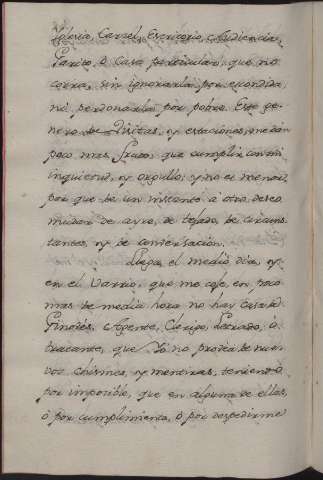 Iglesia, Carzel, Escritorio, Audiencia,
Garito, ò Casa particular, que no
corra, sin ignorarla por escondida,
ni perdonarla por pobre. Este ge-
nero de Visitas, y estaciones, me dan
poco mas fruto, que cumplir con mi
inquietud, y orgullo; y no es menor,
por que de un instante à otro deseo
mudar de ayre, de tejado, de circuns
tantes, y de conversacion.
Llega el medio dia, y
en el Varrio, que me coje, en poco
mas de media hora no hay Casa de
Ginovès, Agente, Clerigo, Letrado, ò
tratante, que Yo no provèa de nue-
vos chismes, y mentiras, teniendo
por imposible, que en alguna de ellas,
ò por cumplimiento, ò por despedirme